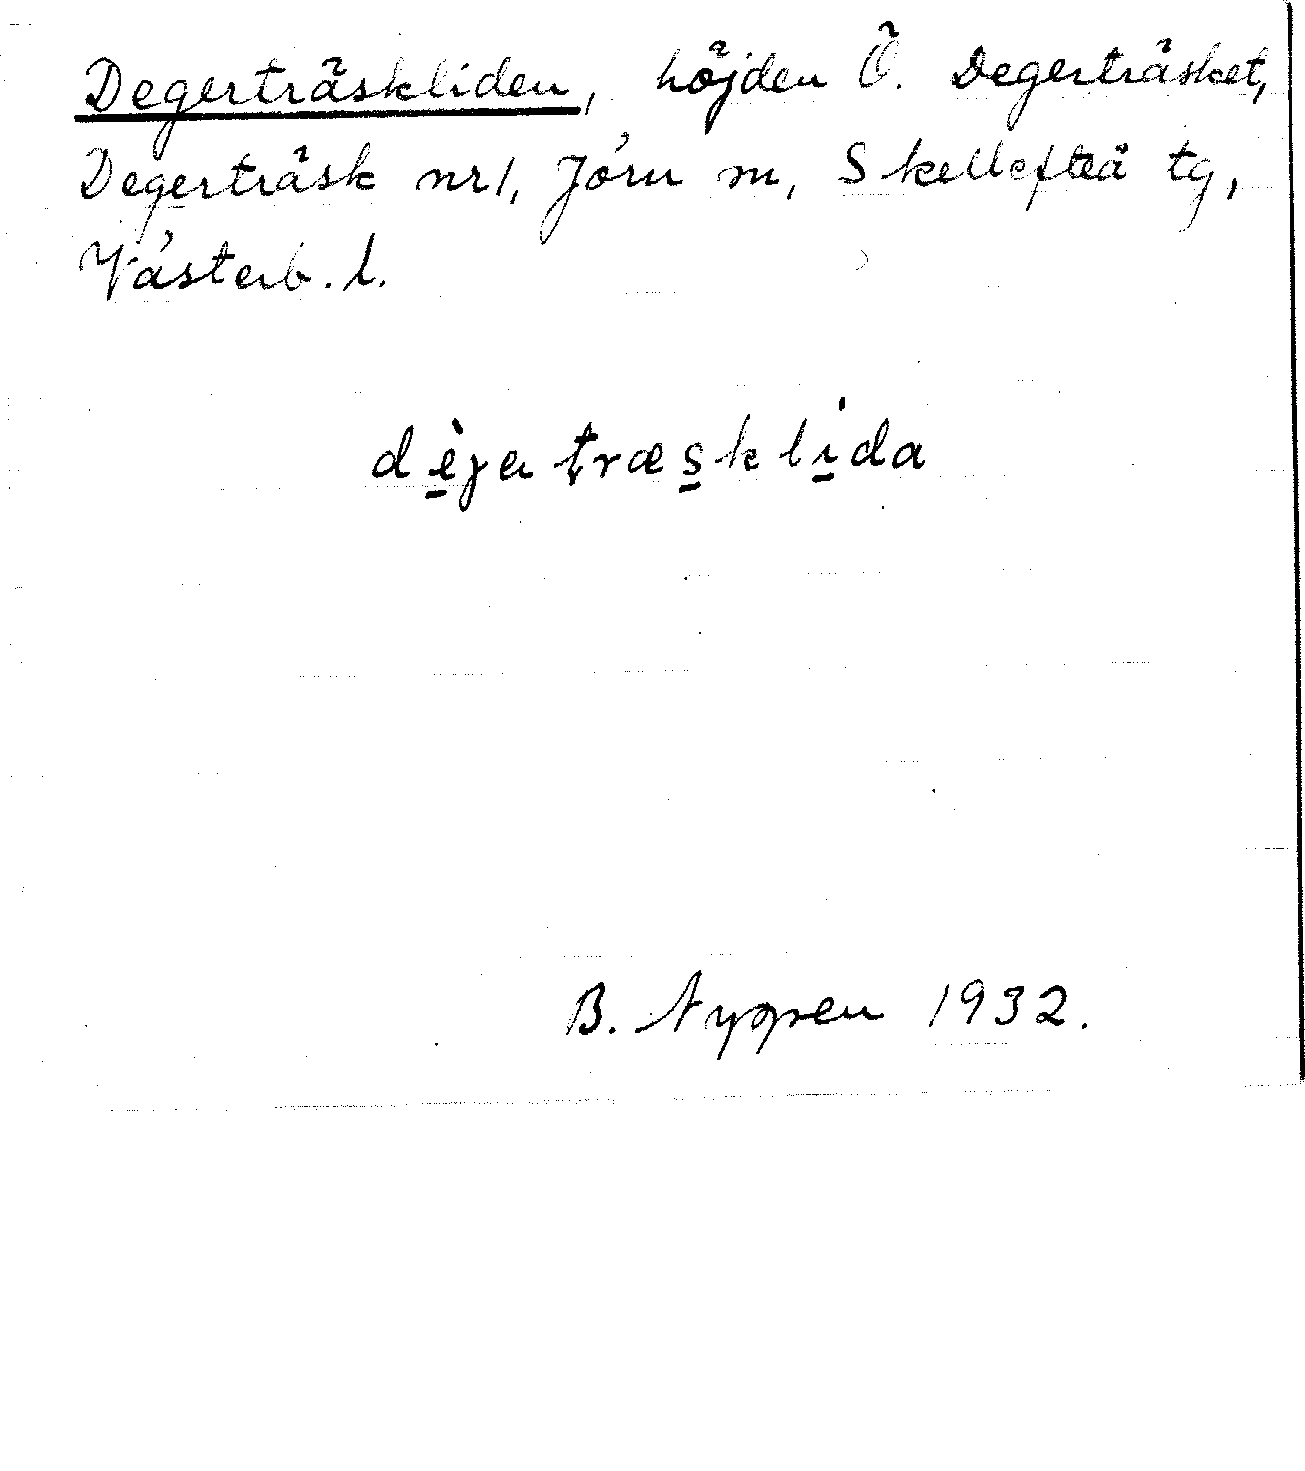 Degerträskliden, höjden Ö. Degerträsket,
Degerträsk nr 1, Jörn m, Skellefteå tg,
Västerb. l.
dèjertræsklìda
B. Nygren 1932.